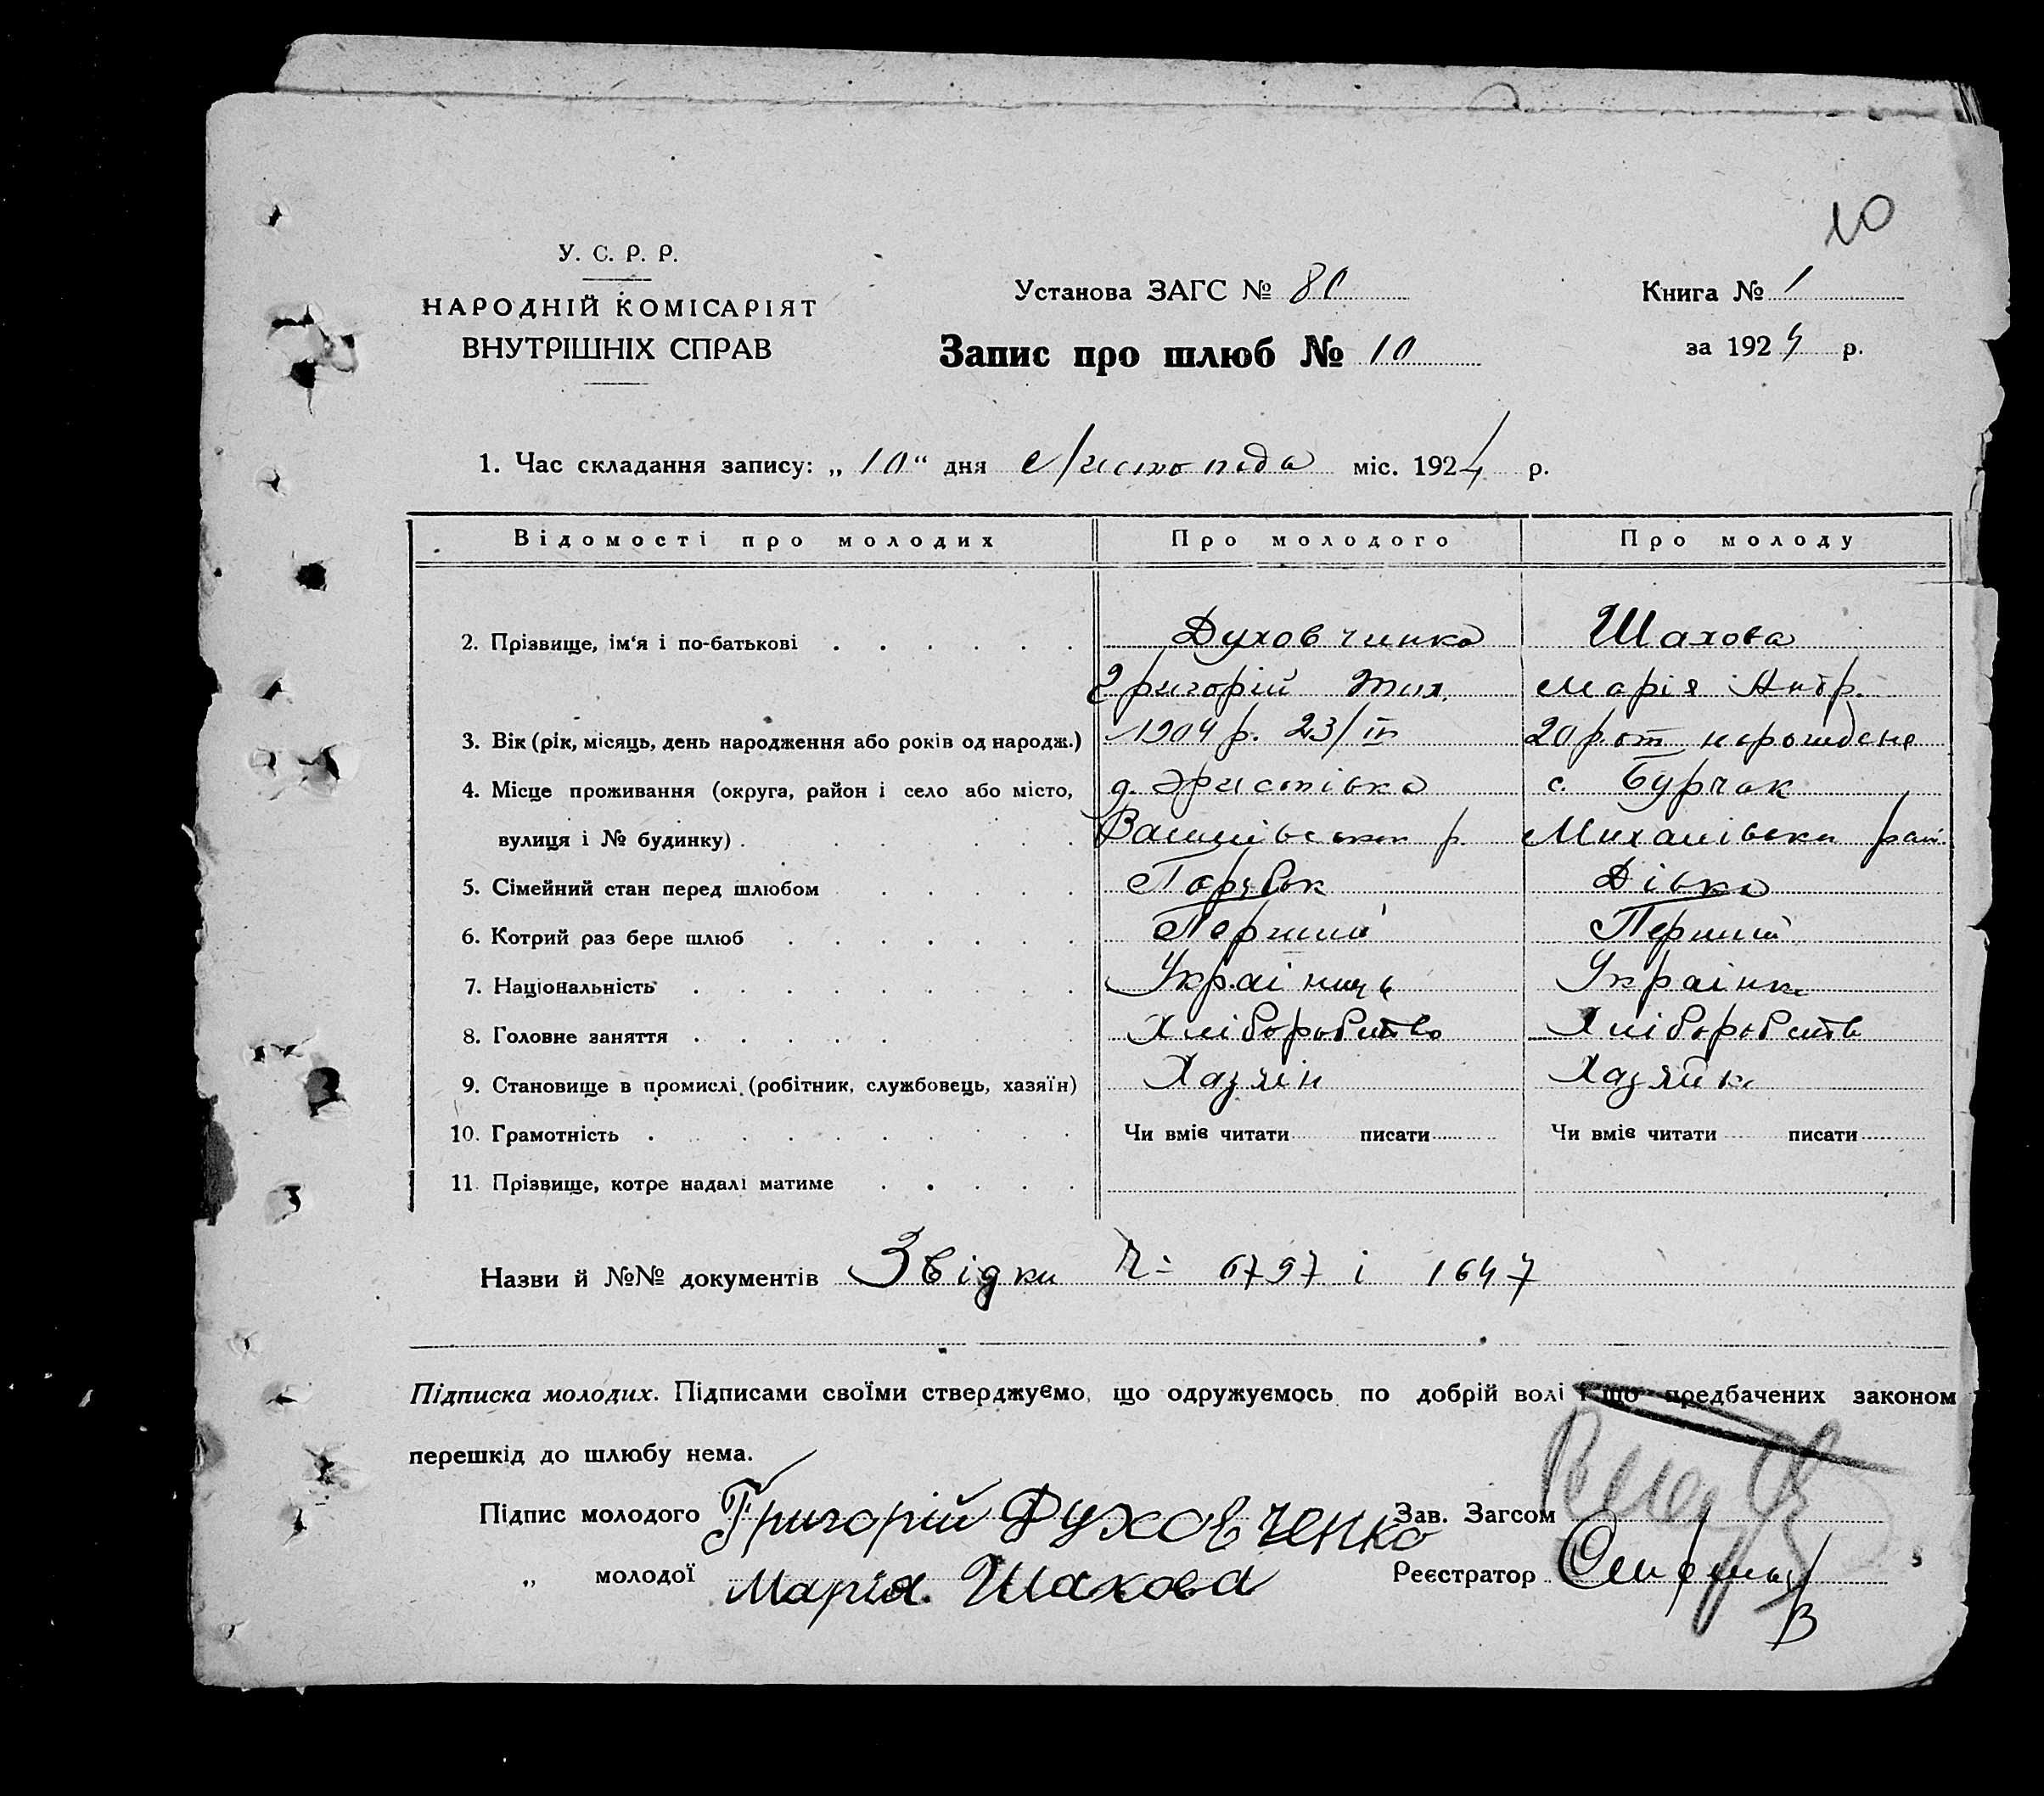 10
У. С. Р. Р.
НАРОДНІЙ КОМІСАРІЯТ
ВНУТРІШНІХ СПРАВ
Установа ЗАГС № 80
Книга № 1
Запис про шлюб № 10
за 1924 р.
1. Час складання запису: „ 10 “ дня листопада міс. 1924 р.
Відомості про молодих Про молодого Про молоду
2. Прізвище, ім'я і по-батькові Духовченко Шахова
Григорій Мих. Марія Андр.
3. Вік (рік, місяць, день народження або років од народж.) 1904 р. 23/IV 20 р. от нарождене
4. Місце проживання (округа, район і село або місто, д. с. Бурчак
вулиця і № будинку) р. рай.
5. Сімейний стан перед шлюбом Парубок Дівка
6. Котрий раз бере шлюб Перший Перший
7. Національність Українць Українка
8. Головне заняття Хліборобство Хліборобств
9. Становище в промислі (робітник, службовець, хазяїн) Хазяін Хазяйка
10. Грамотність Чи вміє читати писати Чи вміє читати писати
11. Прізвище, котре надалі матиме
Назви й №№ документів Звідки 6797 і 1647
Підписка молодих. Підписами своїми стверджуємо, що одружуємось по добрій волі і що предбачених законом
перешкід до шлюбу нема.
Підпис молодого Григорій Духовченко Зав. Загсом
„ молодої Марія Шахова Реєстратор